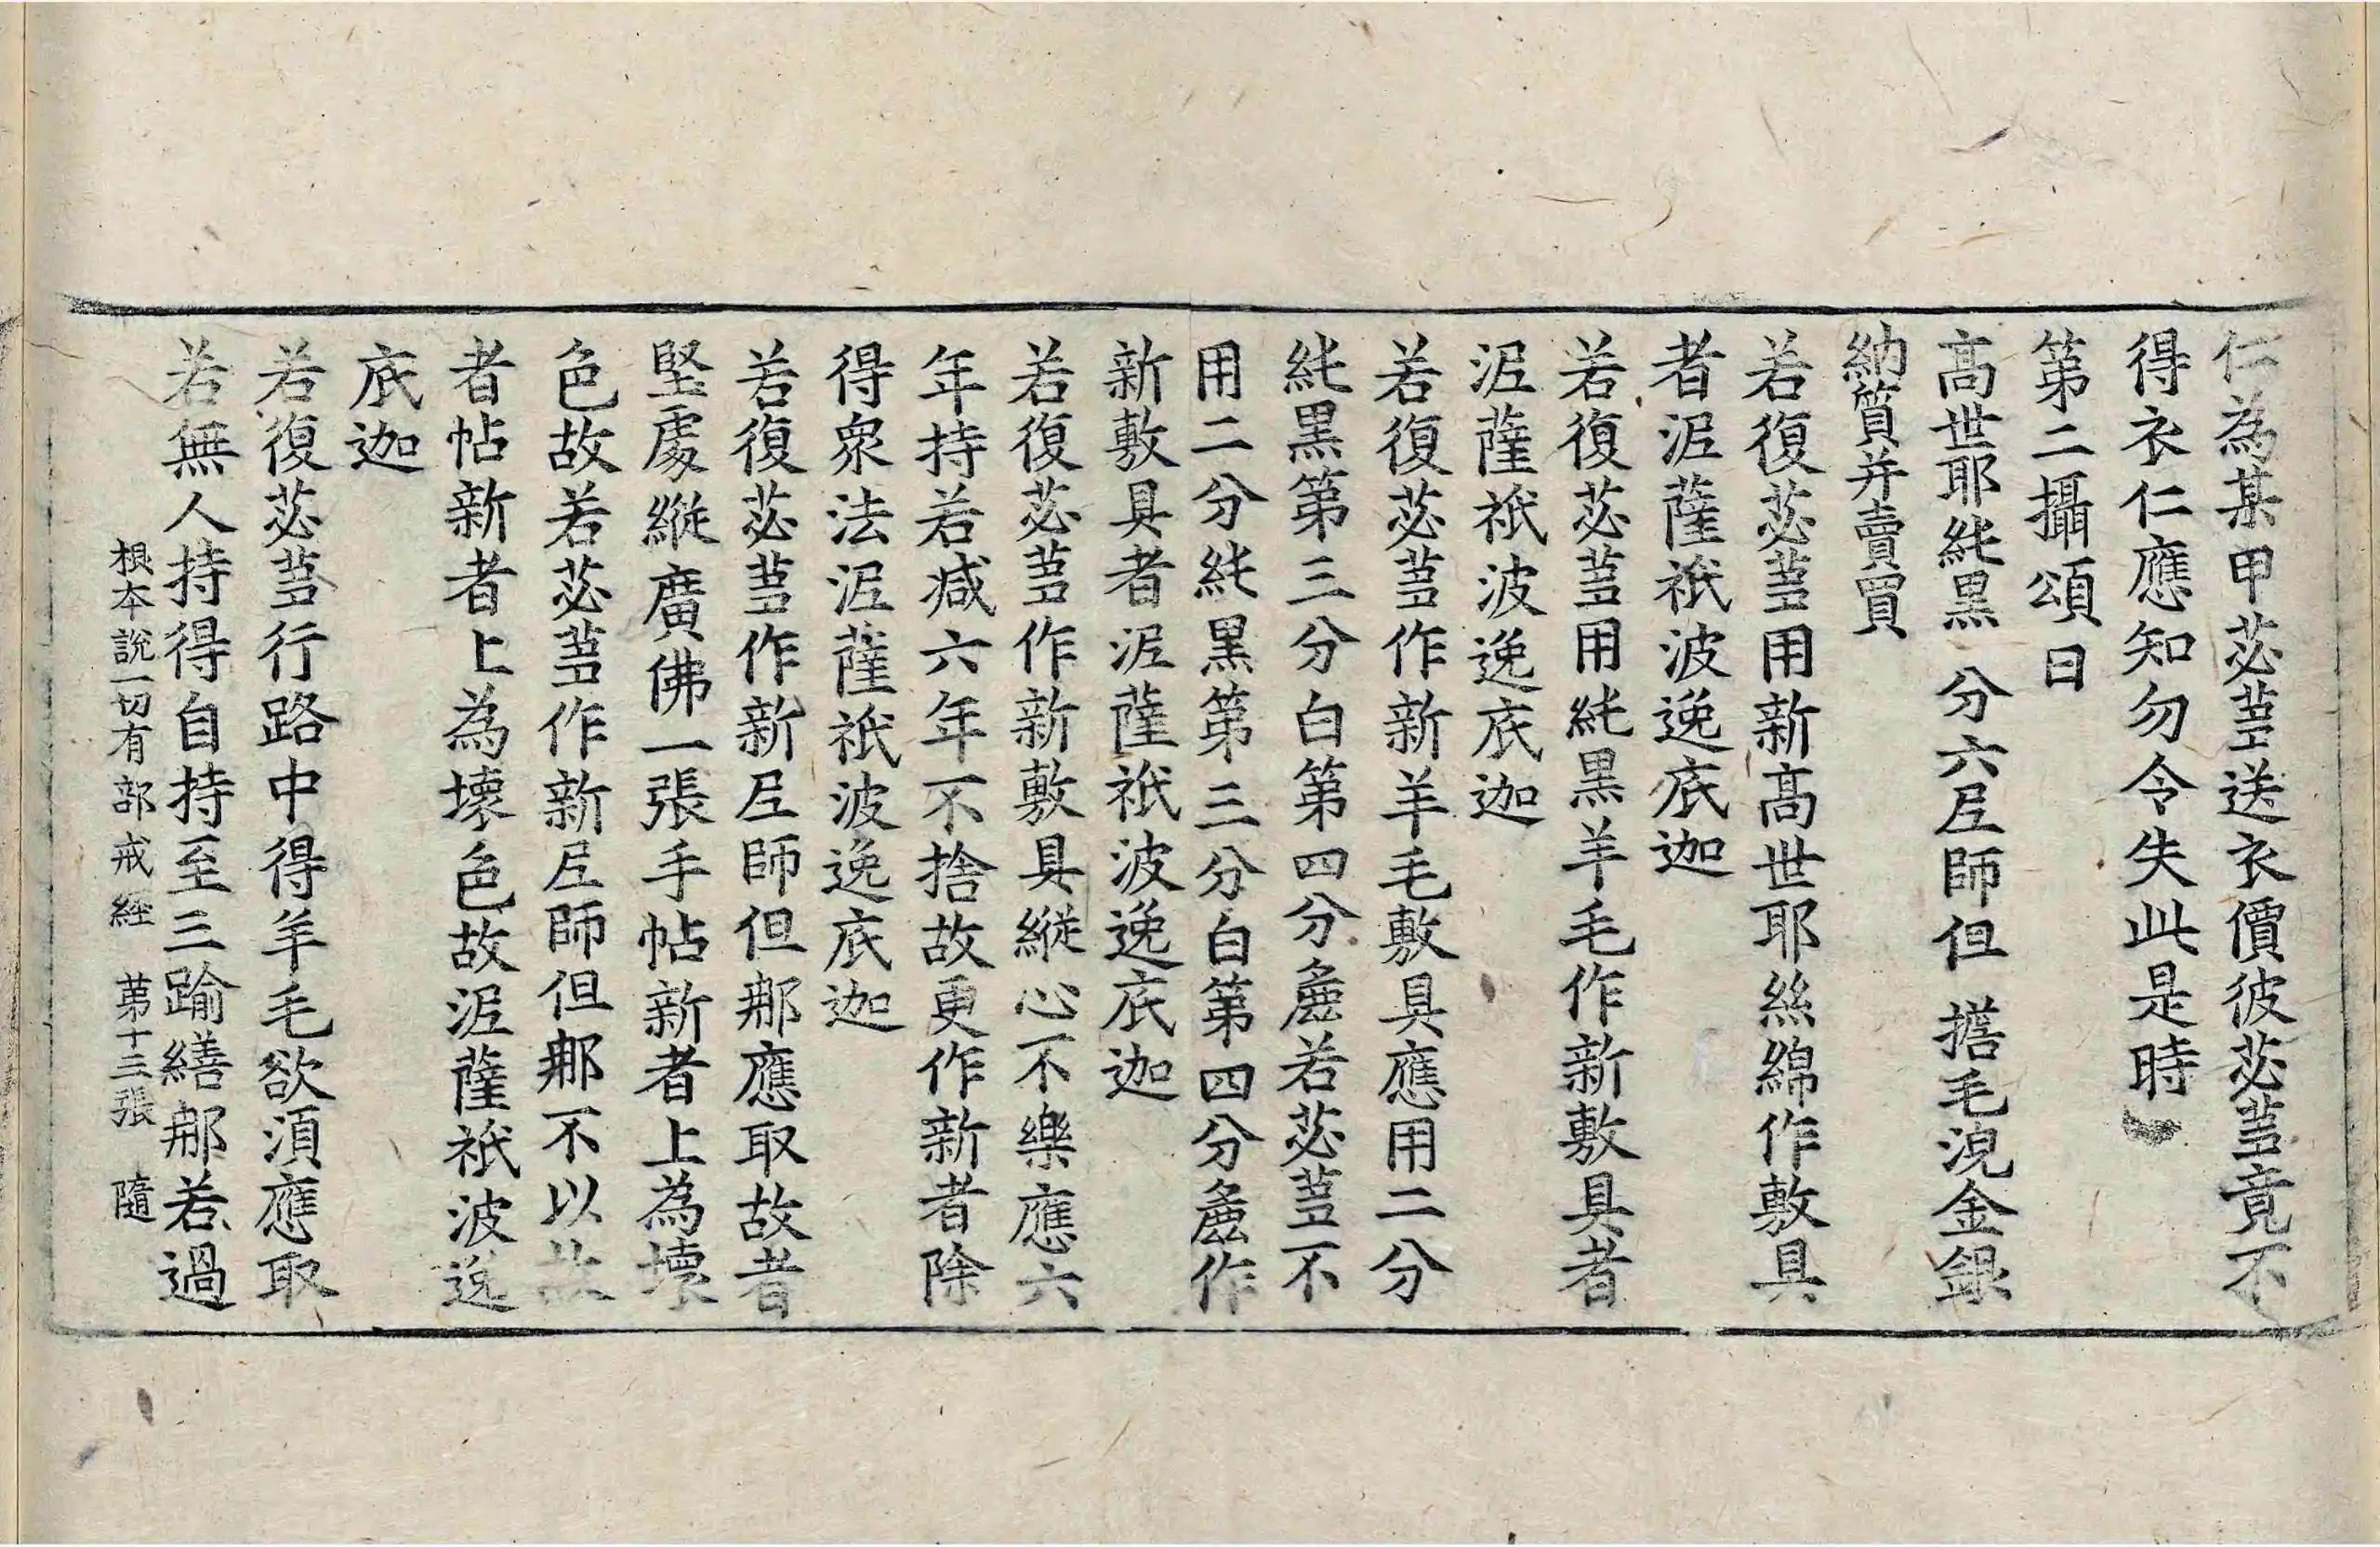 仁為某甲苾蒭送衣價彼苾蒭竟不
得衣仁應知勿令失此是時
第二攝頌曰
髙世耶純黒　分六尼師但　擔毛浼金銀
納質并賣買
若復苾蒭用新髙世耶絲綿作敷具
者泥薩祇波逸底迦
若復苾蒭用純黒羊毛作新敷具者
泥薩祇波逸底迦
若復苾蒭作新羊毛敷具應用二分
純黒第三分白第四分麁若苾蒭不
用二分純黒第三分白第四分麁作
新敷具者泥薩祇波逸底迦
若復苾蒭作新敷具縱心不樂應六
年持若減六年不捨故更作新者除
得衆法泥薩祇波逸底迦
若復苾蒭作新尼師但那應取故者
堅處縱廣佛一張手帖新者上為壞
色故若苾蒭作新尼師但那不以故
者帖新者上為壞色故泥薩祇波逸
底迦
若復苾蒭行路中得羊毛欲湏應取
若無人持得自持至三踰繕那若過
根本說一切有部戒經　第十三張　隨